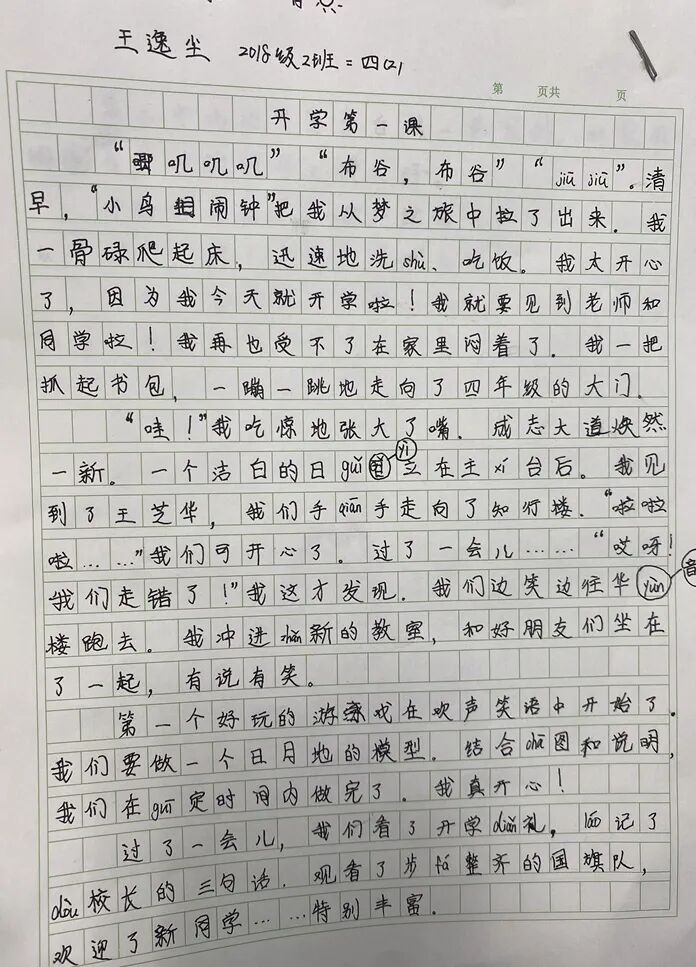 王逸尘 2018级2班=四(2)
第 页共 页
开学第一课
“叽叽叽” “布谷，布谷” “jiū jiū”。清
早，“小鸟闹钟”把我从梦之旅中拉了出来。我
一骨碌爬起床，迅速地洗shù、吃饭。我太开心
了，因为我今天就开学啦！我就要见到老师和
同学啦！我再也受不了在家里闷着了。我一把
抓起书包，一蹦一跳地走向了四年级的大门。
“哇！”我吃惊地张大了嘴。成志大道焕然
一新。一个洁白的日guǐ yì立在主xí台后。我见
到了王芝华，我们手qiān手走向了知行楼。“啦啦
啦……”我们可开心了。过了一会儿……“哎呀！
我们走错了！”我这才发现。我们边笑边往华yùn
楼跑去。我冲进zhǎn新的教室，和好朋友们坐在
了一起，有说有笑。
第一个好玩的游戏在欢声笑语中开始了。
我们要做一个日月地的模型。结合chā图和说明，
我们在guī定时间内做完了。我真开心！
过了一会儿，我们看了开学diǎn礼，láo记了
dòu校长的三句话。观看了步fá整齐的国旗队，
欢迎了新同学……特别丰富。